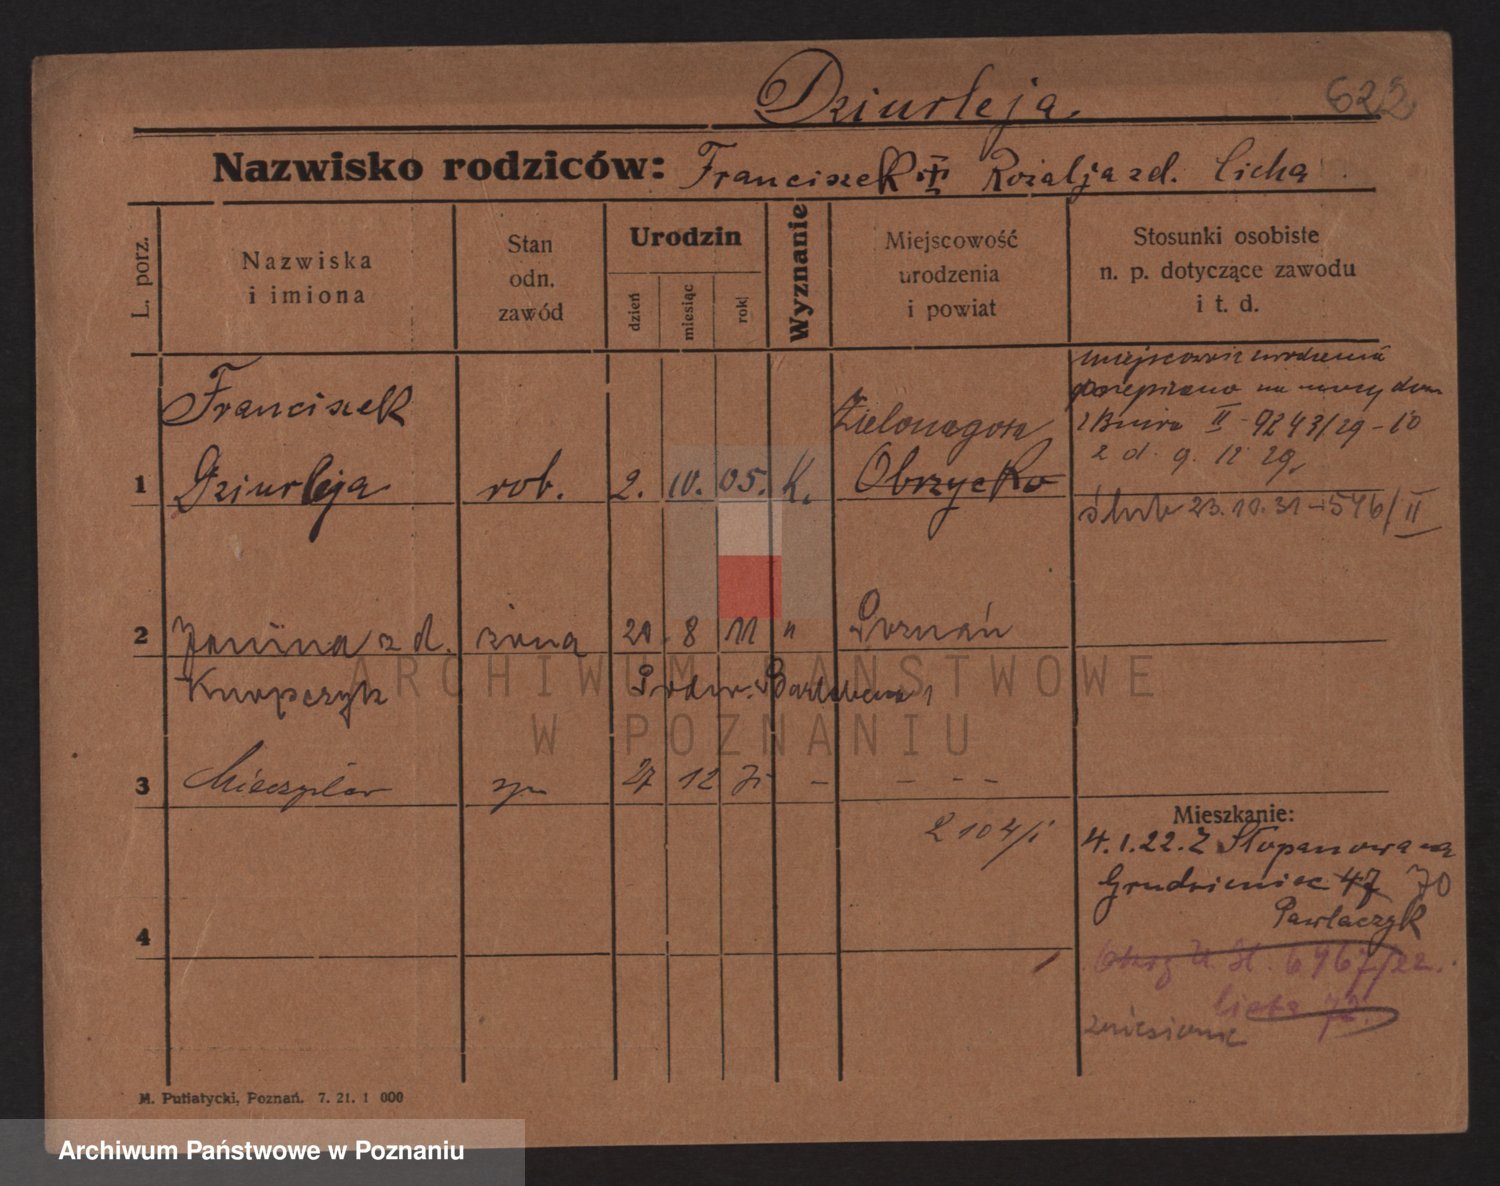 Dziurleja
622
Nazwisko rodziców: Franciszek i Rozalja z d. Cicha
L. porz.
Nazwiska
i imiona
Stan
odn.
zawód
Urodzin
dzień
miesiąc
rok
Wyznanie
Miejscowość
urodzenia
i powiat
Stosunki osobiste
n. p. dotyczące zawodu
i t. d.
1
Franciszek
Dziurleja
rob.
2. 10. 05. K.
Zielonagora
Obrzycko
miejscowość urodzenia
przepisano na mocy
z Biura II - 9243/29 - 10
z d. 9. 12 29.
ślub 23.10.31 - 546/II
2
Janina z d.
Knopczyk
żona
20. 8 11 "
Poznań
3
Mieczysław
27 12 –
– – –
4
2104/i
Mieszkanie:
4.1.22. Z Stopanowa na
Grudzieniec 47 70
Pawlaczyk
6967/22.
lista 72.
zniesione
M. Putiatycki, Poznań. 7. 21. 1 000
ARCHIWUM PAŃSTWOWE
W POZNANIU
Archiwum Państwowe w Poznaniu